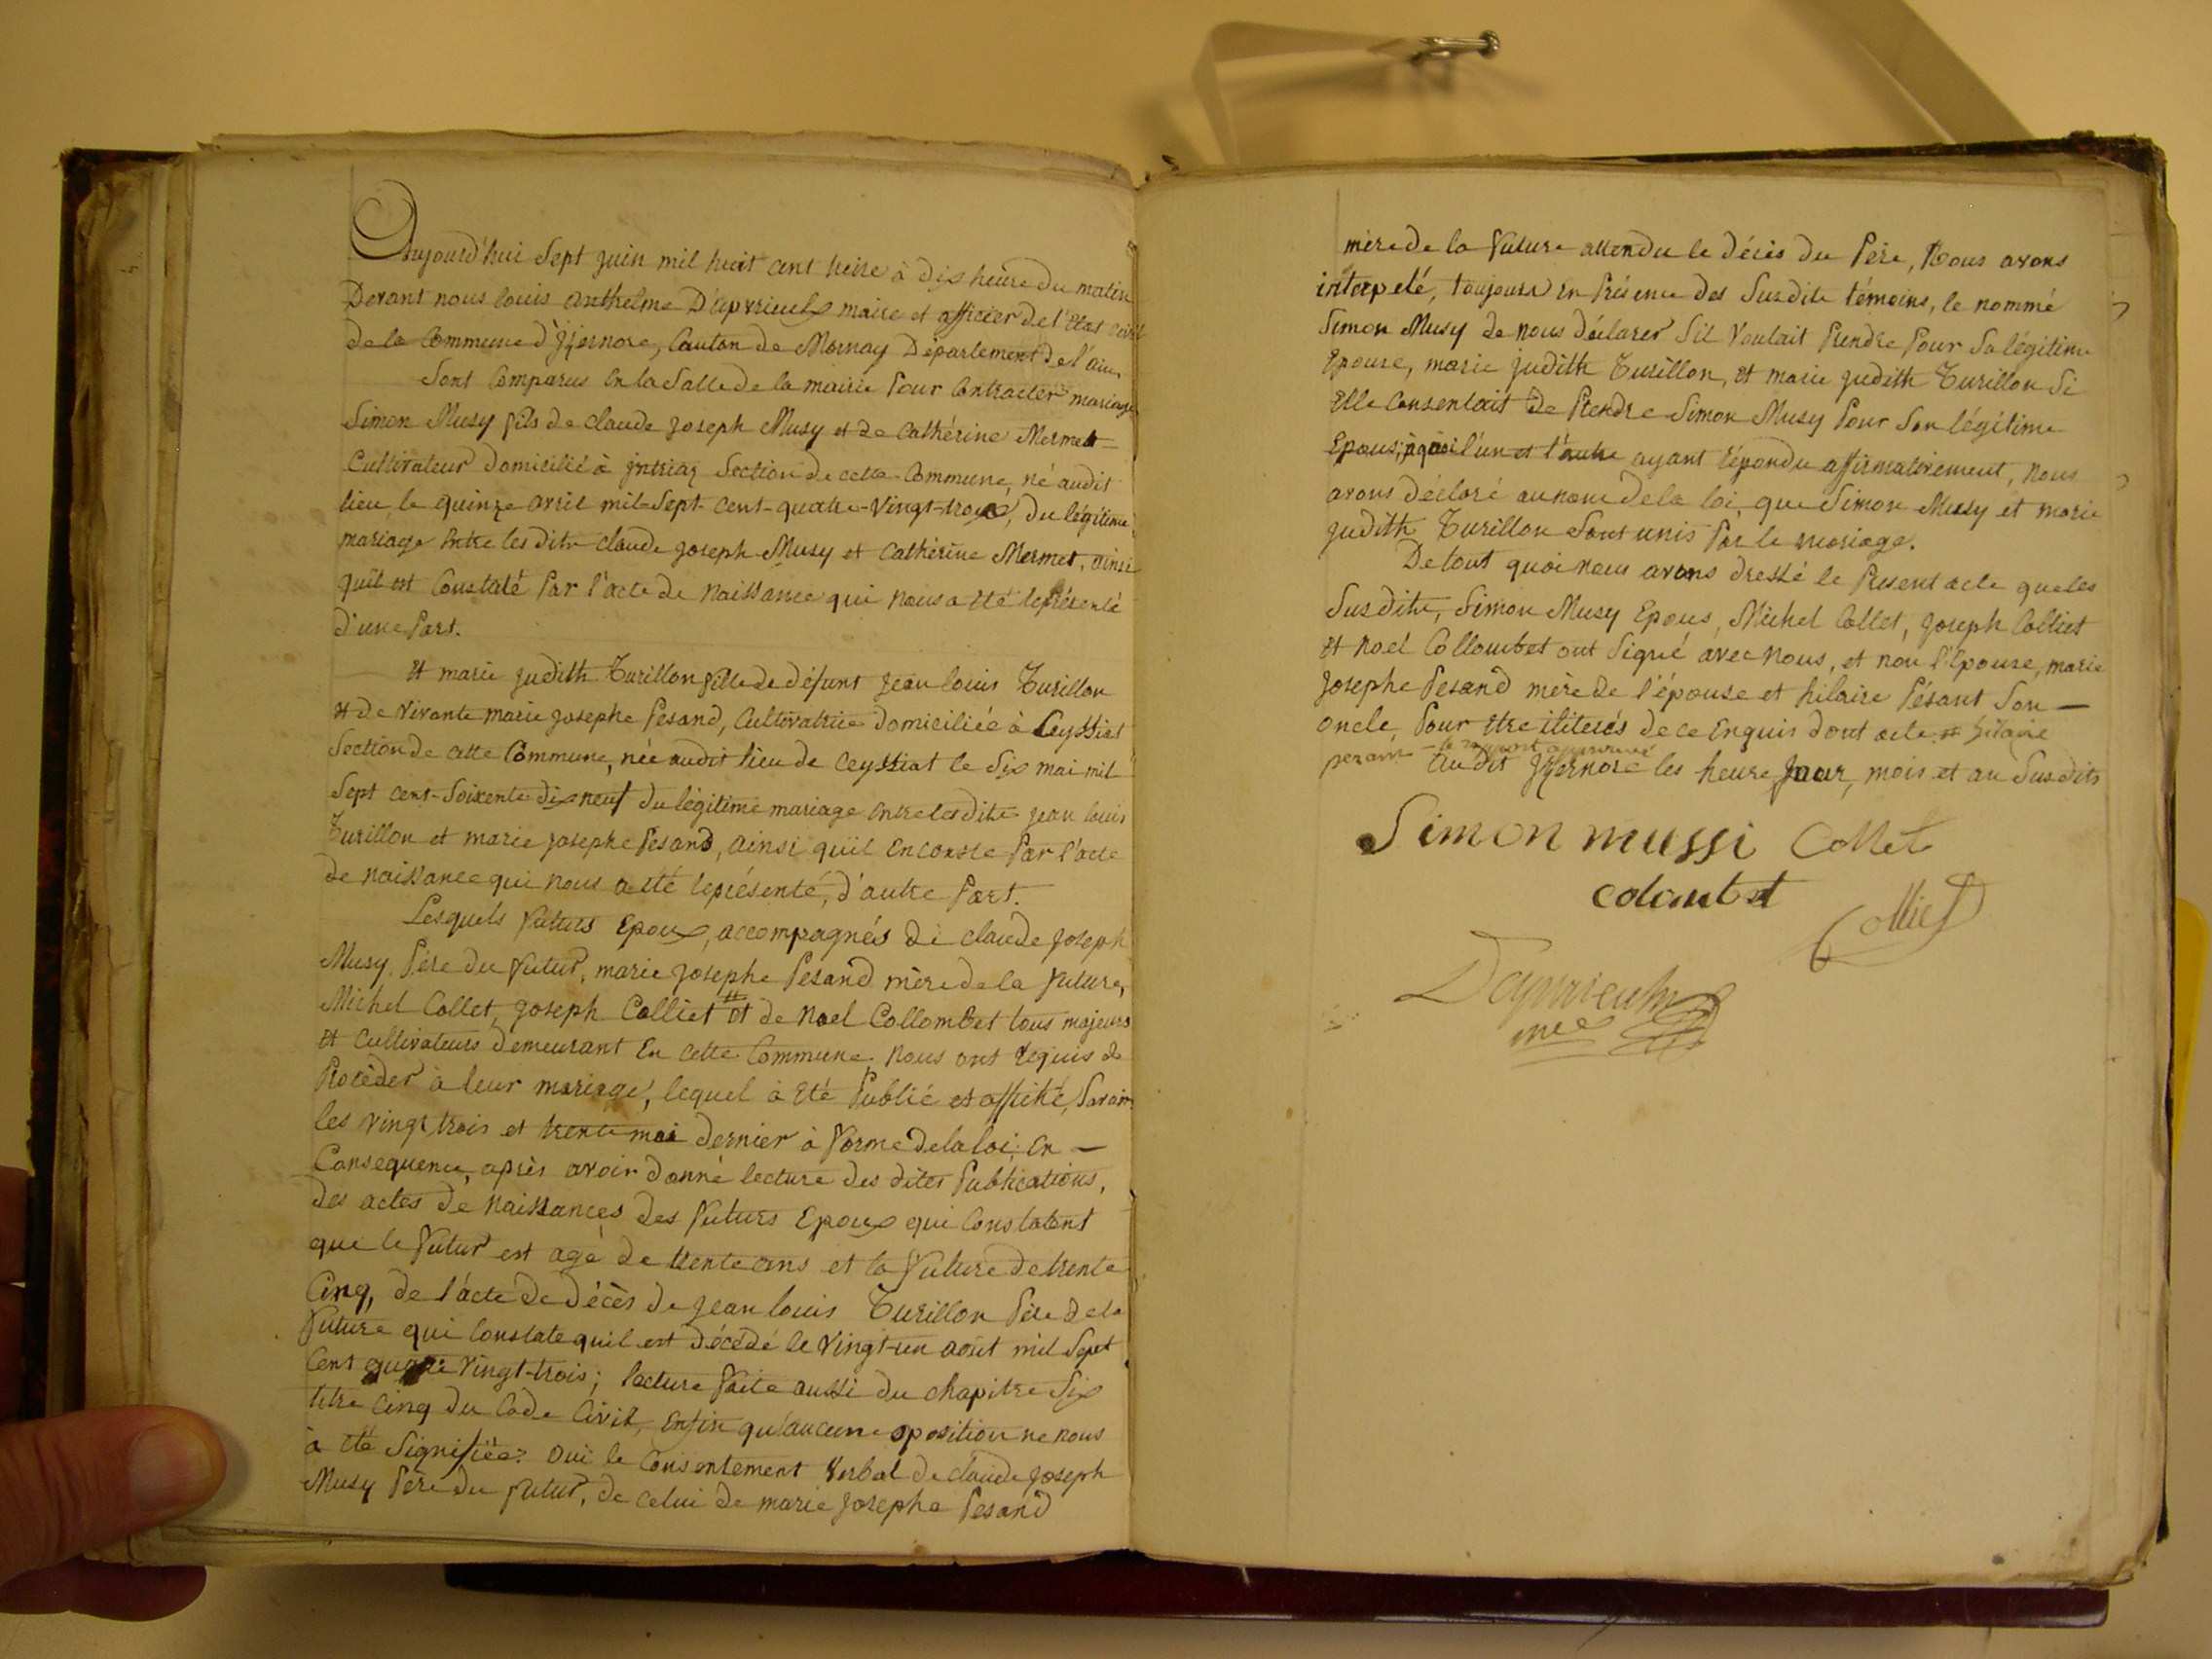 Aujourd'hui Sept juin mil huit cent treize à dix heure du matin
Devant nous louis anthelme D'apvrieulx maire et officier de l'Etat civil
de la Commune d'jzernore, Canton de Mornay Département de l'ain,
Sont Comparus en la Salle de la mairie Pour Contracter mariage
Simon Musy fils de claude joseph Musy et de Cathérine Mermet
Cultivateur domicilié à jntriaz Section de cette Commune, né audit
lieu, le quinze avril mil-Sept-cent-quatre-Vingt-trois, du légitime
mariage Entre les dits claude joseph Musy et Cathérine Mermet, ainsi
quil est Constaté Par l'acte de Naissance qui nous a été représenté
d'une Part.
Et marie judith Turillon fille de défunt jean louis Turillon
et de Vivante marie josephe Pesand, Cultivatrice domiciliée à Ceyssiat
Section de cette Commune, née audit lieu de Ceyssiat le Six mai mil
Sept cent-Soixente dix neuf du légitime mariage entre lesdits jean louis
Turillon et marie josephe Pesand, ainsi quil En conste Par l'acte
de naissance qui nous a été représenté, d'autre Part.
Lesquels futurs Epoux, accompagnés de claude joseph
Musy Père du futur, marie josephe Pesand mère de la future,
Michel Collet, joseph Colliet # et de Noel Collombet tous majeurs
et cultivateurs demeurant En cette Commune, nous ont requis de
Procéder à leur mariage, lequel à été Publié et affiché, Savoir
les vingt trois et trente mai dernier à forme de la loi; En —
Consequence, après avoir donné lecture des dites Publications,
des actes de naissances des futurs Epoux qui Constatent
que le futur est agé de trente ans et la future de trente
Cinq, de l'acte de décès de jean louis Turillon Père de la
future qui Constate quil est décédé le Vingt-un août mil Sept
Cent quatre Vingt-trois; lecture faite aussi du chapitre Six
titre Cinq du Code Civil, Enfin qu'aucune oposition ne nous
à été Signifiée: ouï le Consentement Verbal de claude joseph
Musy Père du futur, de celui de marie josephe Pesand
mère de la future attendu le décès du Père, Nous avons
interpelé, toujours en Présence des Susdits témoins, le nommé
Simon Musy de nous déclarer Sil Voulait Prendre Pour Sa légitime
Epouse, marie judith Turillon, et marie judith Turillon Si
Elle Consentait de Prendre Simon Musy Pour Son légitime
Epous; à quoi l'un et l'autre ayant répondu affirmativement, Nous
avons déclaré au nom de la loi, que Simon Musy et marie
judith Turillon Sont unis Par le mariage.
De tout quoi nous avons dressé le Present acte que les
Susdits, Simon Musy Epous, Michel Collet, joseph Colliet
et noel Collombet ont Signé avec Nous, et non l'Epouse, marie
josephe Pesand mère de l'épouse et hilaire Pésant Son —
oncle, Pour être iliterés de ce Enquis dont acte # hilaire
pesant — le rapport approuvé
Au dit jzernore les heure jour, mois et an Susdits
Simon mussi Collet
colambet
Colliet
Dapvrieulx
mre